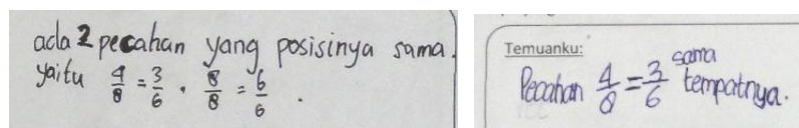 ada 2 pecahan yang posisinya sama.
yaitu 4/8 = 3/6 . 8/8 = 6/6 .
Temuanku:
Pecahan 4/8 = 3/6 sama tempatnya.